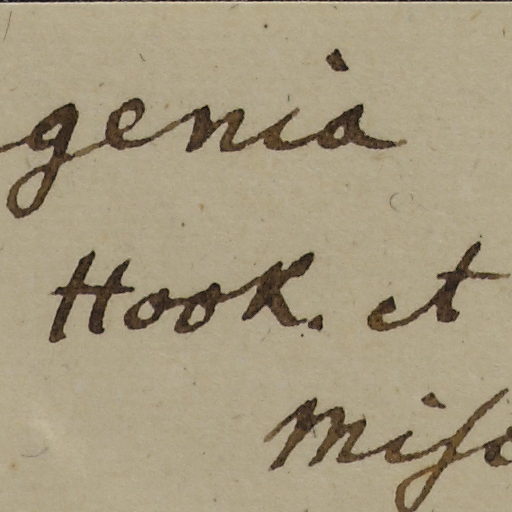 genia
Hook. et
Miſo